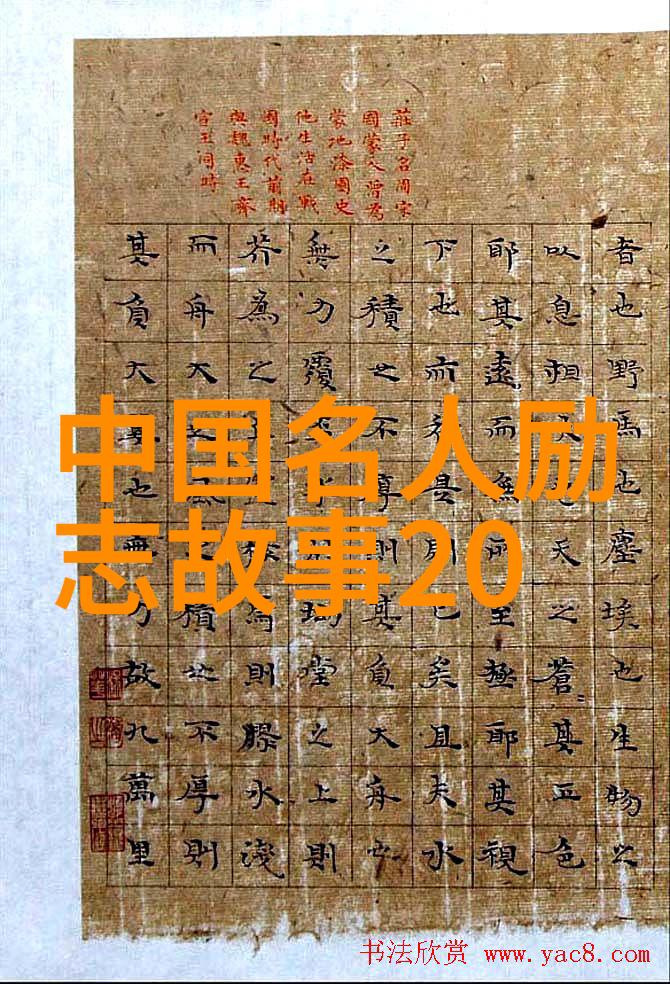 莊子名周宋
國蒙人曾為
蒙地漆園史
他生活在戰
國時代前期
與魏惠王齊
宣王同時
者也野馬也塵埃也生物之
以息相吹也天之蒼〻其正色
耶其遠而無所至極耶其視
下也亦若是則已矣且夫水
之積也不厚則其負大舟也
無力覆杯水於坳堂之上則
芥為之舟置杯焉則膠水淺
而舟大也風之積也不厚則
其負大翼也無力故九萬里
中国名人励
志故事20
书法欣赏 www.yac8.com